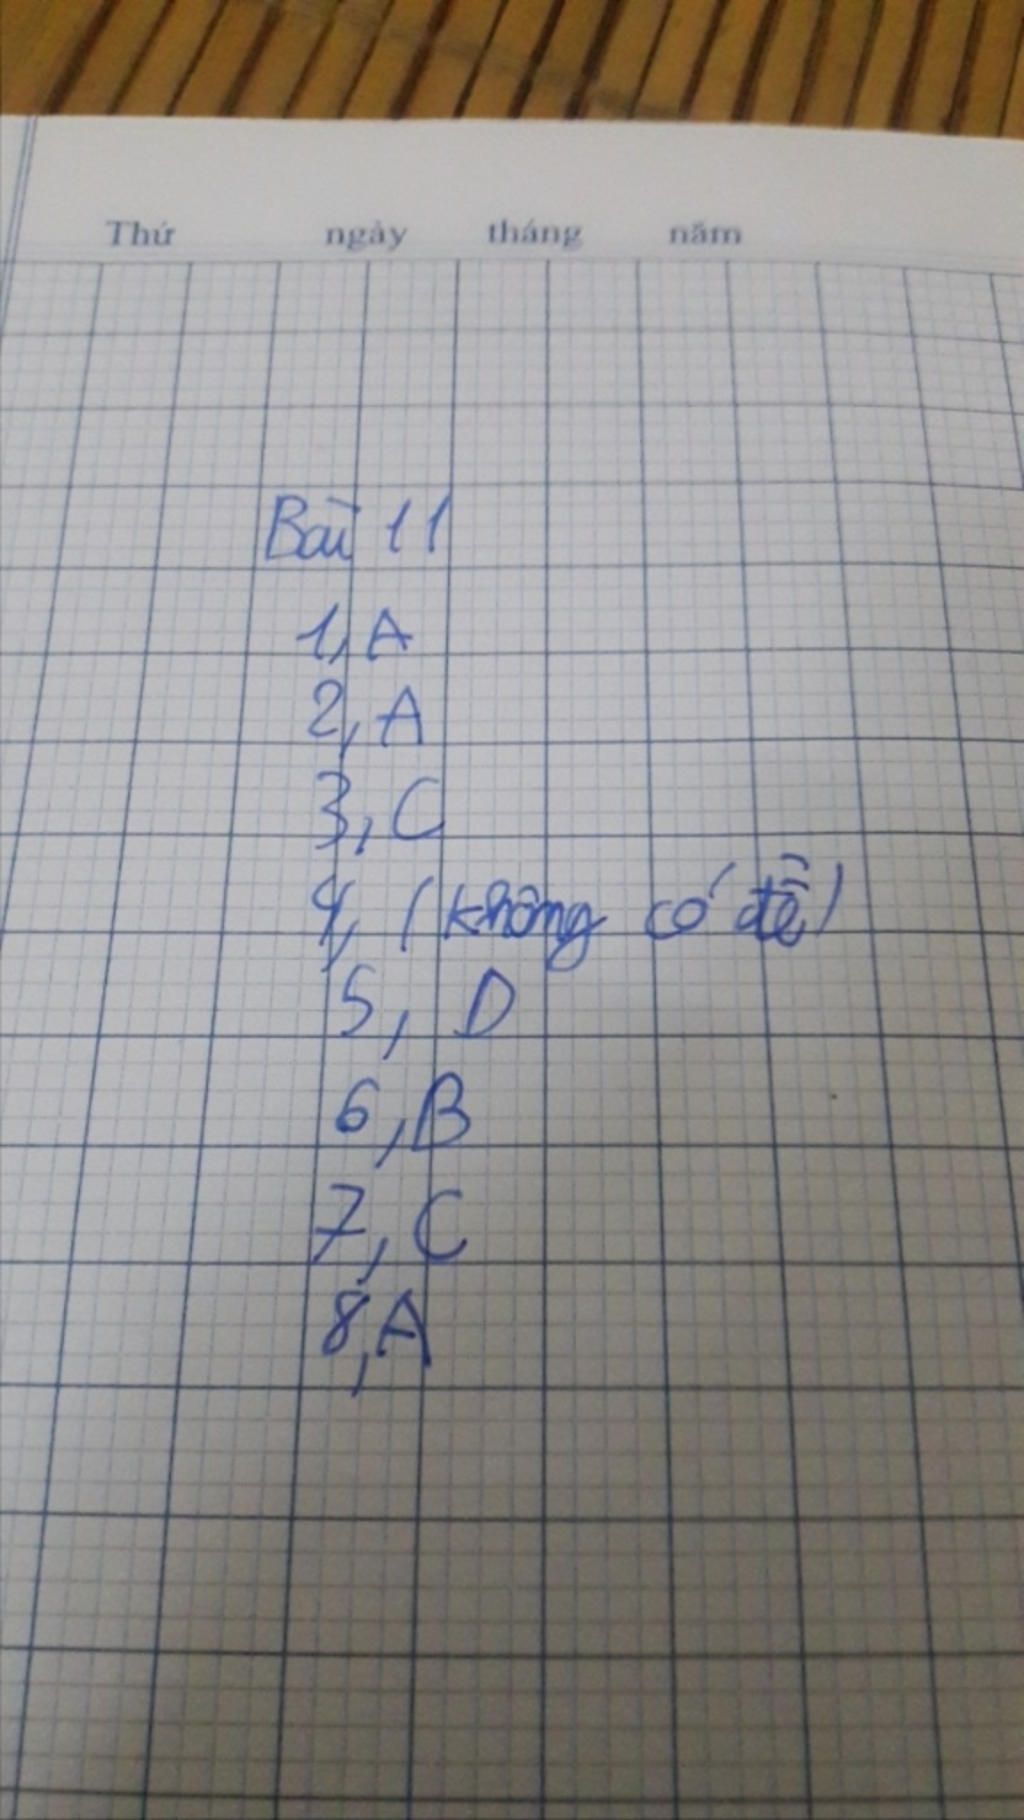 Thứ ngày tháng năm
Bài 11
1, A
2, A
3, C
4, (không có đề)
5, D
6, B
7, C
8, A